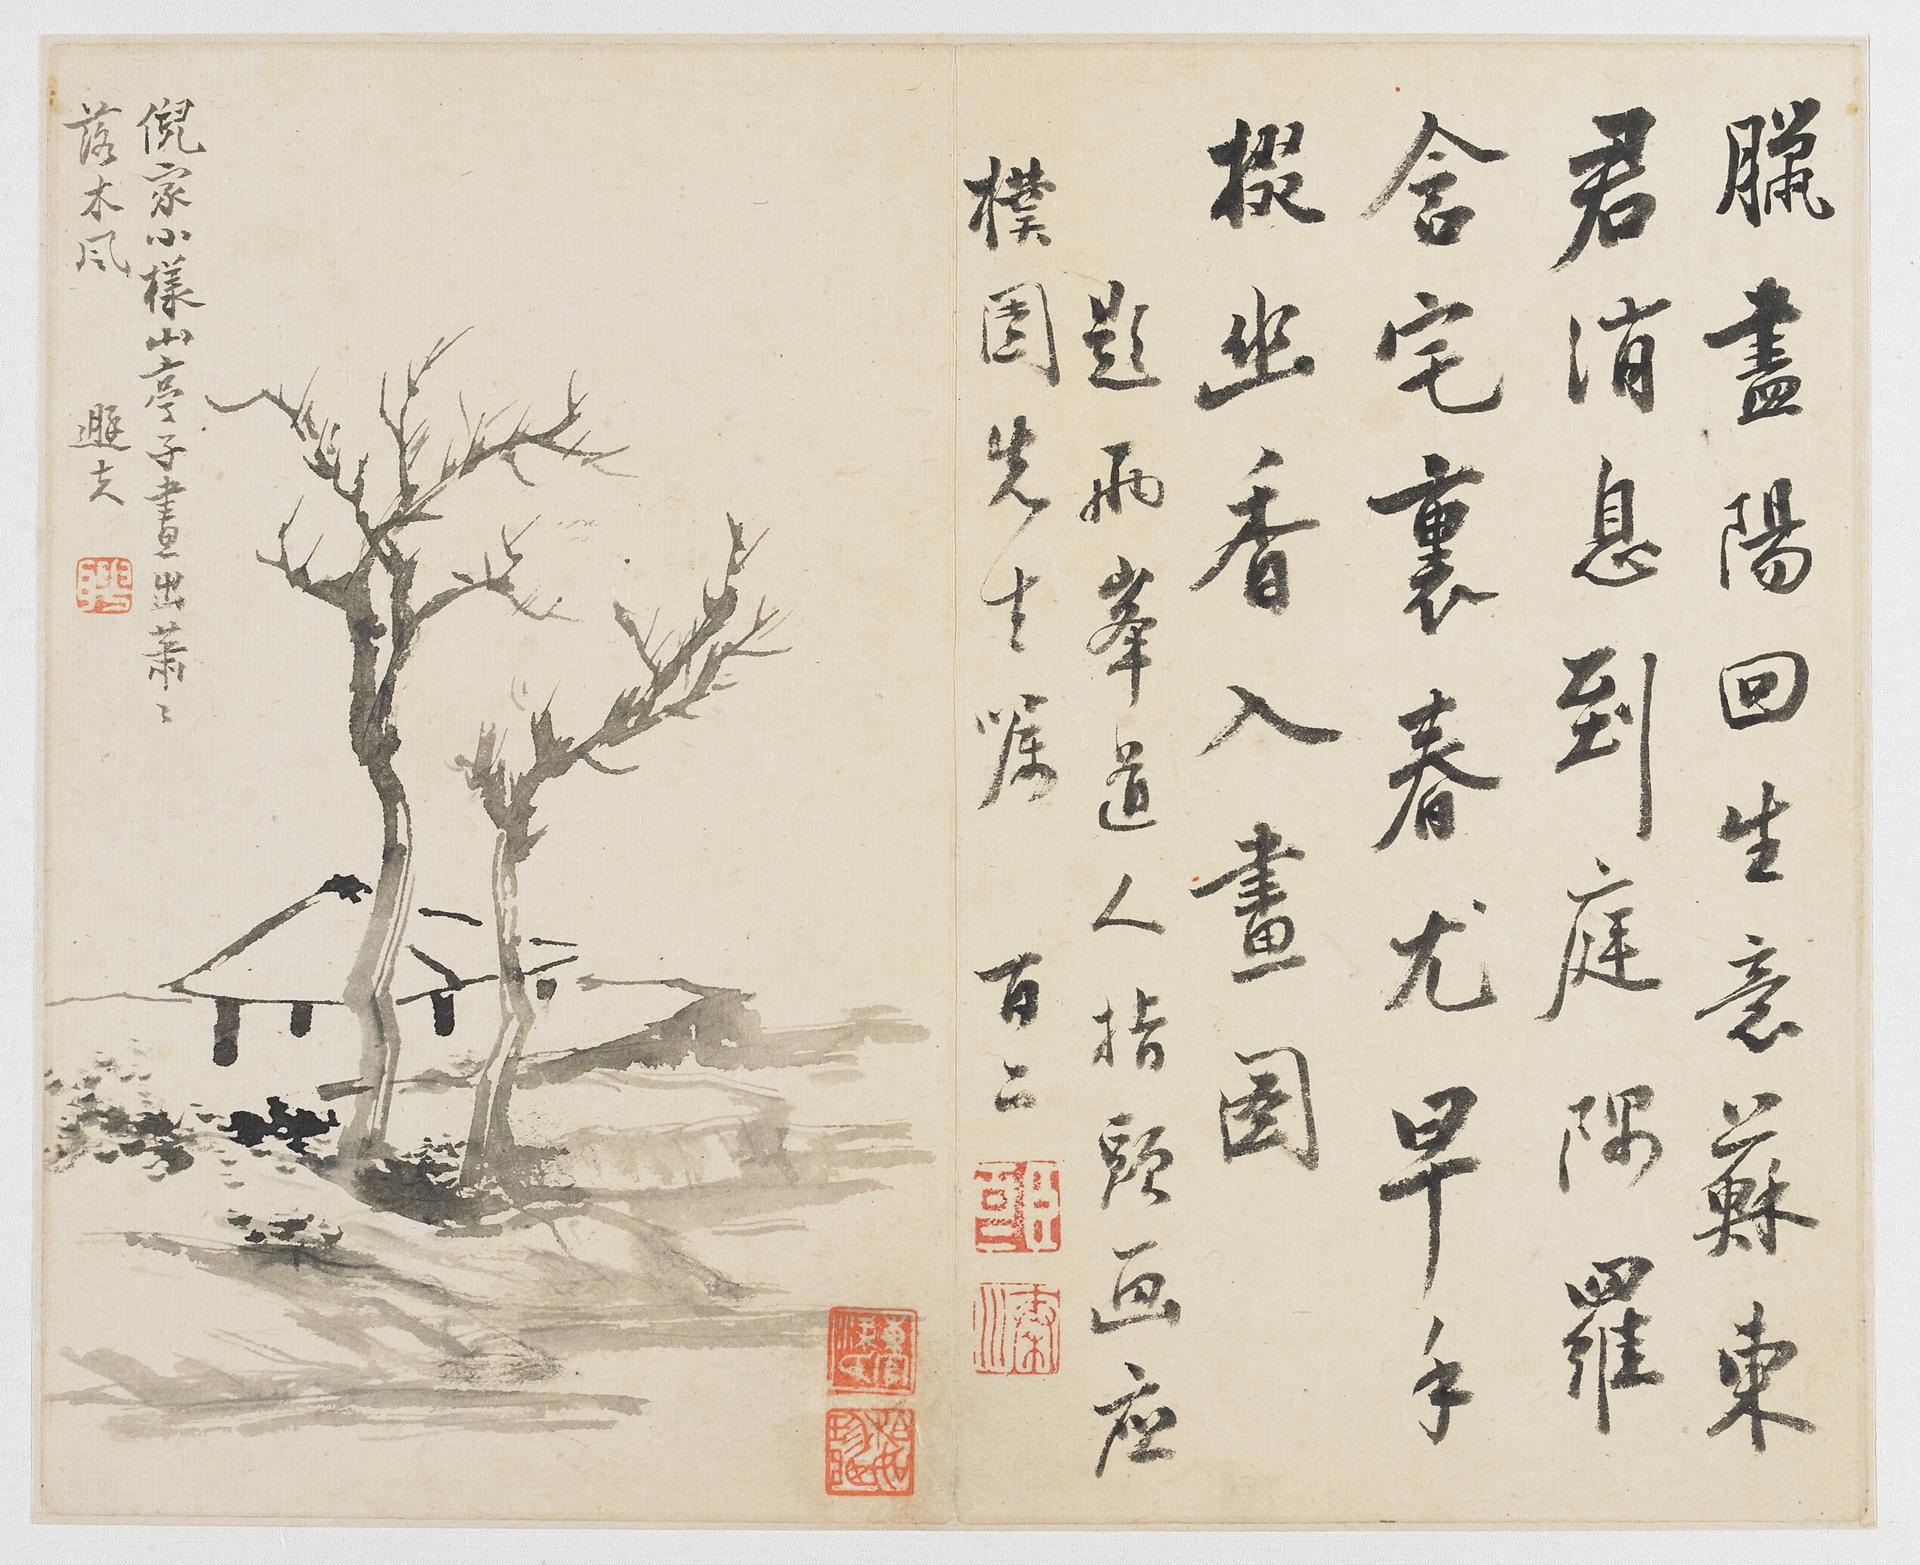 臘盡陽回生意蘇東
君消息到庭隅羅
含宅裏春尤早手
掇幽香入畫圖
題兩峯道人指頭画應
樸園先生屬 百二
倪家小樣山亭子畫出蕭〻
落木风
遯夫